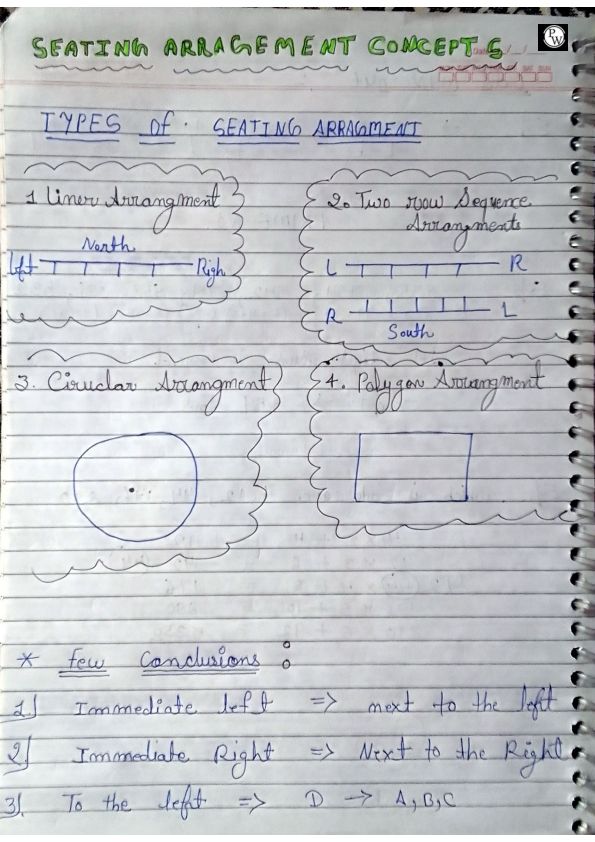 SEATING ARRAGEMENT CONCEPT S
PW
TYPES of SEATING ARRAGMENT
1 Liner Arrangment
North
left Righ
2. Two row Sequence
Arrangments
L R
R L
South
3. Ciruclar Arrangment
4. Polygon Arrangment
* few Conclusions :
1) Immediate left => next to the left
2) Immediate Right => Next to the Right
3) To the left => D → A, B, C